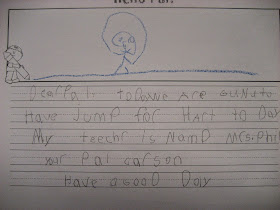 Dear Pal. todawe are guneto
Have Jump for Hart to Day
My teechr is Namd Mrs. Phil
your Pal carson
Have a Good Day